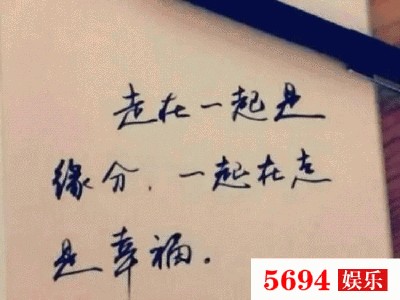 走在一起是
缘分、一起在走
是幸福.
5694 娱乐